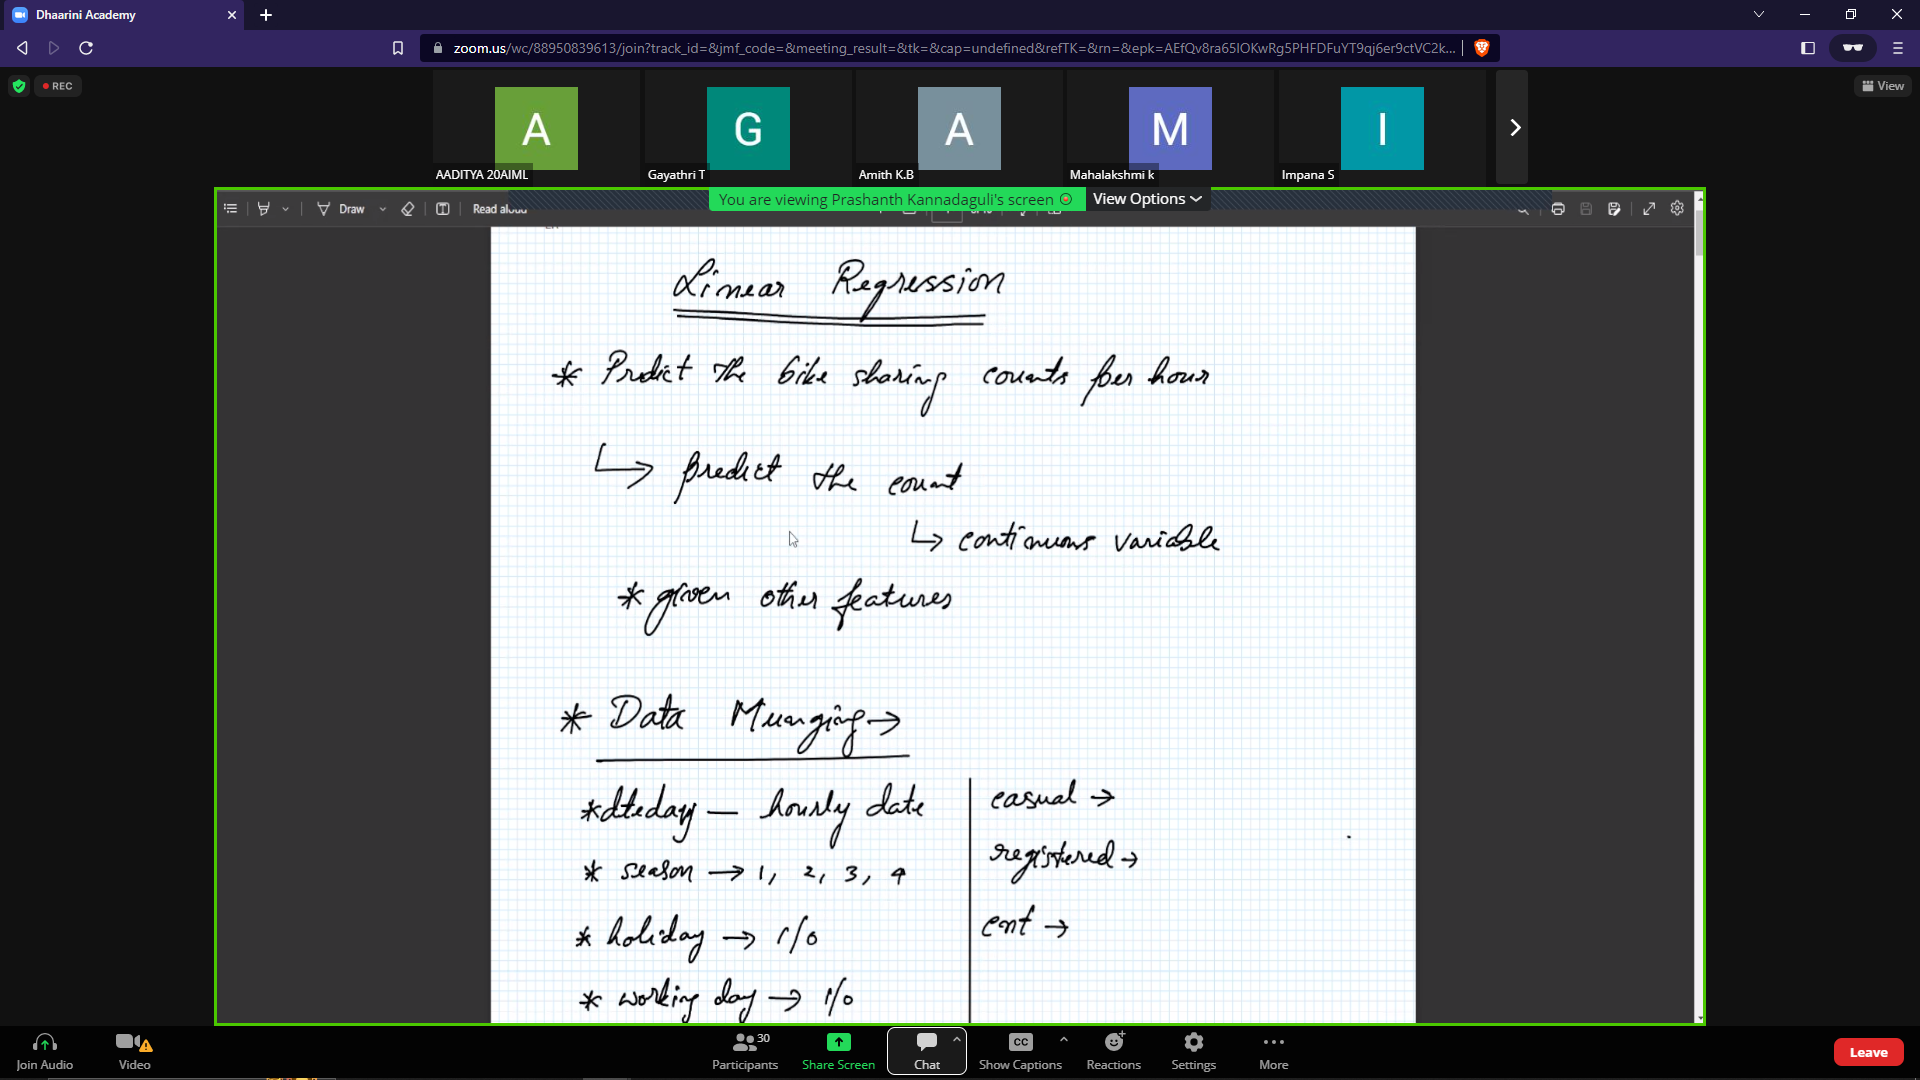 Dhaarini Academy
zoom.us/wc/88950839613/join?track_id=&jmf_code=&meeting_result=&tk=&cap=undefined&refTK=&rn=&epk=AEfQv8ra65IOKwRg5PHFDFuYT9qj6er9ctVC2k...
REC
View
A
G
A
M
I
AADITYA 20AIML
Gayathri T
Amith K.B
Mahalakshmi k
Impana S
You are viewing Prashanth Kannadaguli's screen
View Options
Draw
Read aloud
Linear Regression
* Predict the bike sharing counts per hour
↳ predict the count
↳ continuous variable
* given other features
* Data Munging →
* dteday — hourly date
* season → 1, 2, 3, 4
* holiday → 1/0
* working day → 1/0
casual →
registered →
cnt →
Join Audio
Video
30
Participants
Share Screen
Chat
CC
Show Captions
Reactions
Settings
More
Leave